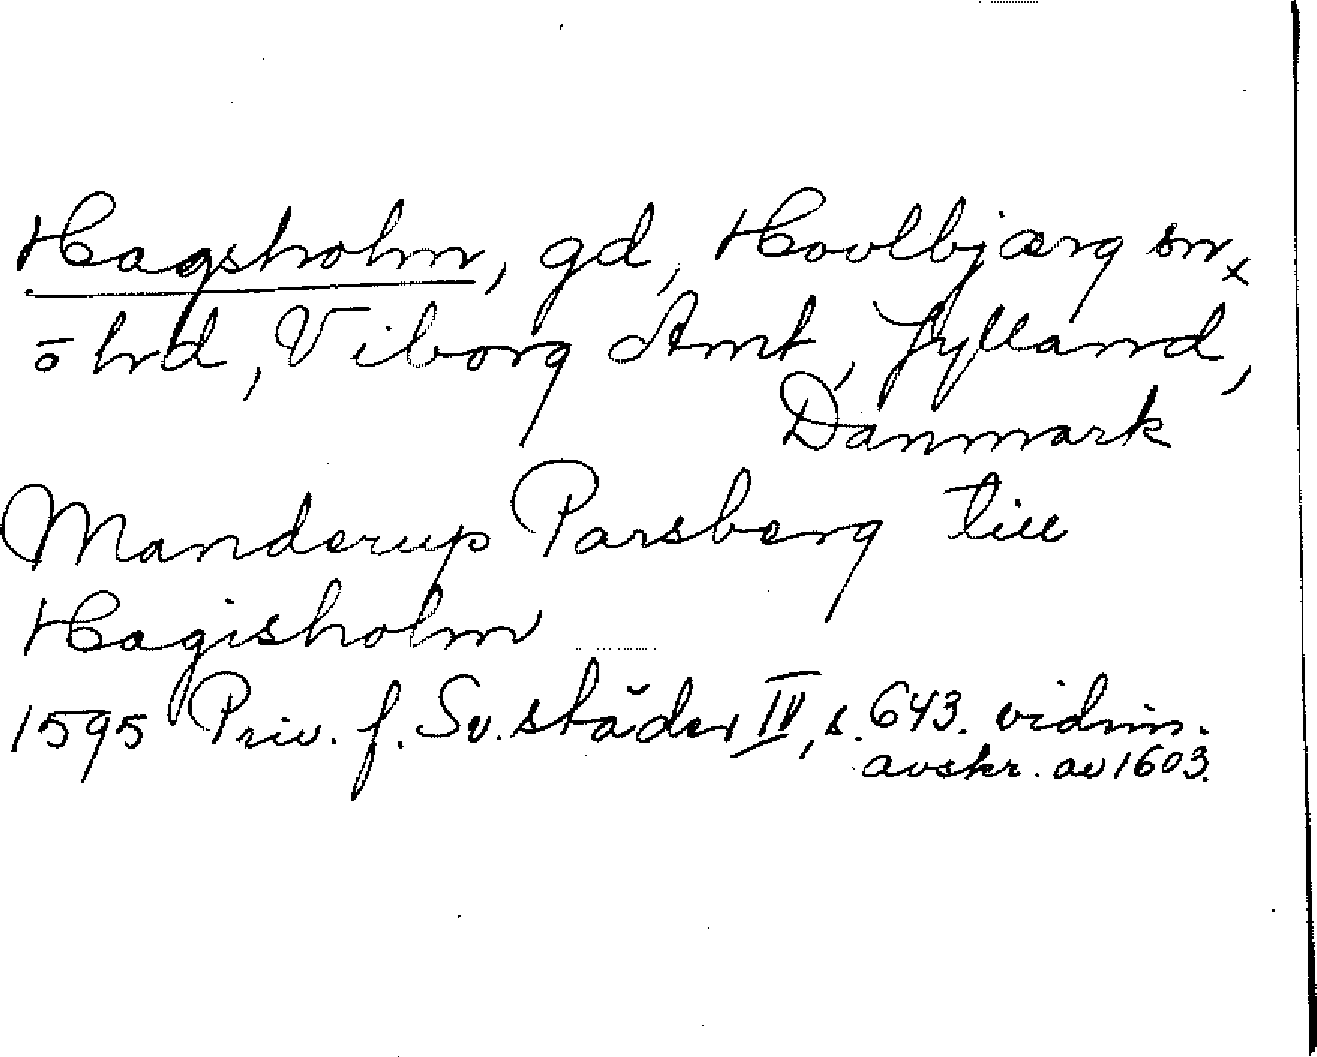 Hagsholm, gd, Hovlbjærg sn,
o hrd, Viborg Amt, Jylland,
Danmark
Manderup Parsberg till
Hagisholm
1595 Priv. f. Sv. städer IV, s. 643. vidim.
avskr. av 1603.